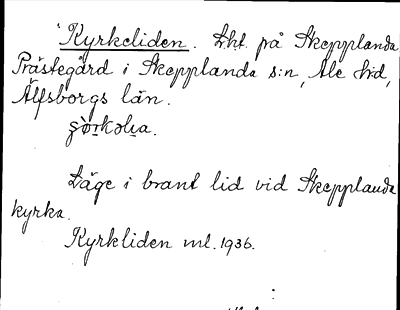 'Kyrkeliden. Lht. på Skepplanda
Prästegård i Skepplanda s:n, Ale hd,
Älfsborgs län.
Läge i brant lid vid Skepplanda
kyrka.
Kyrkliden ml. 1936.